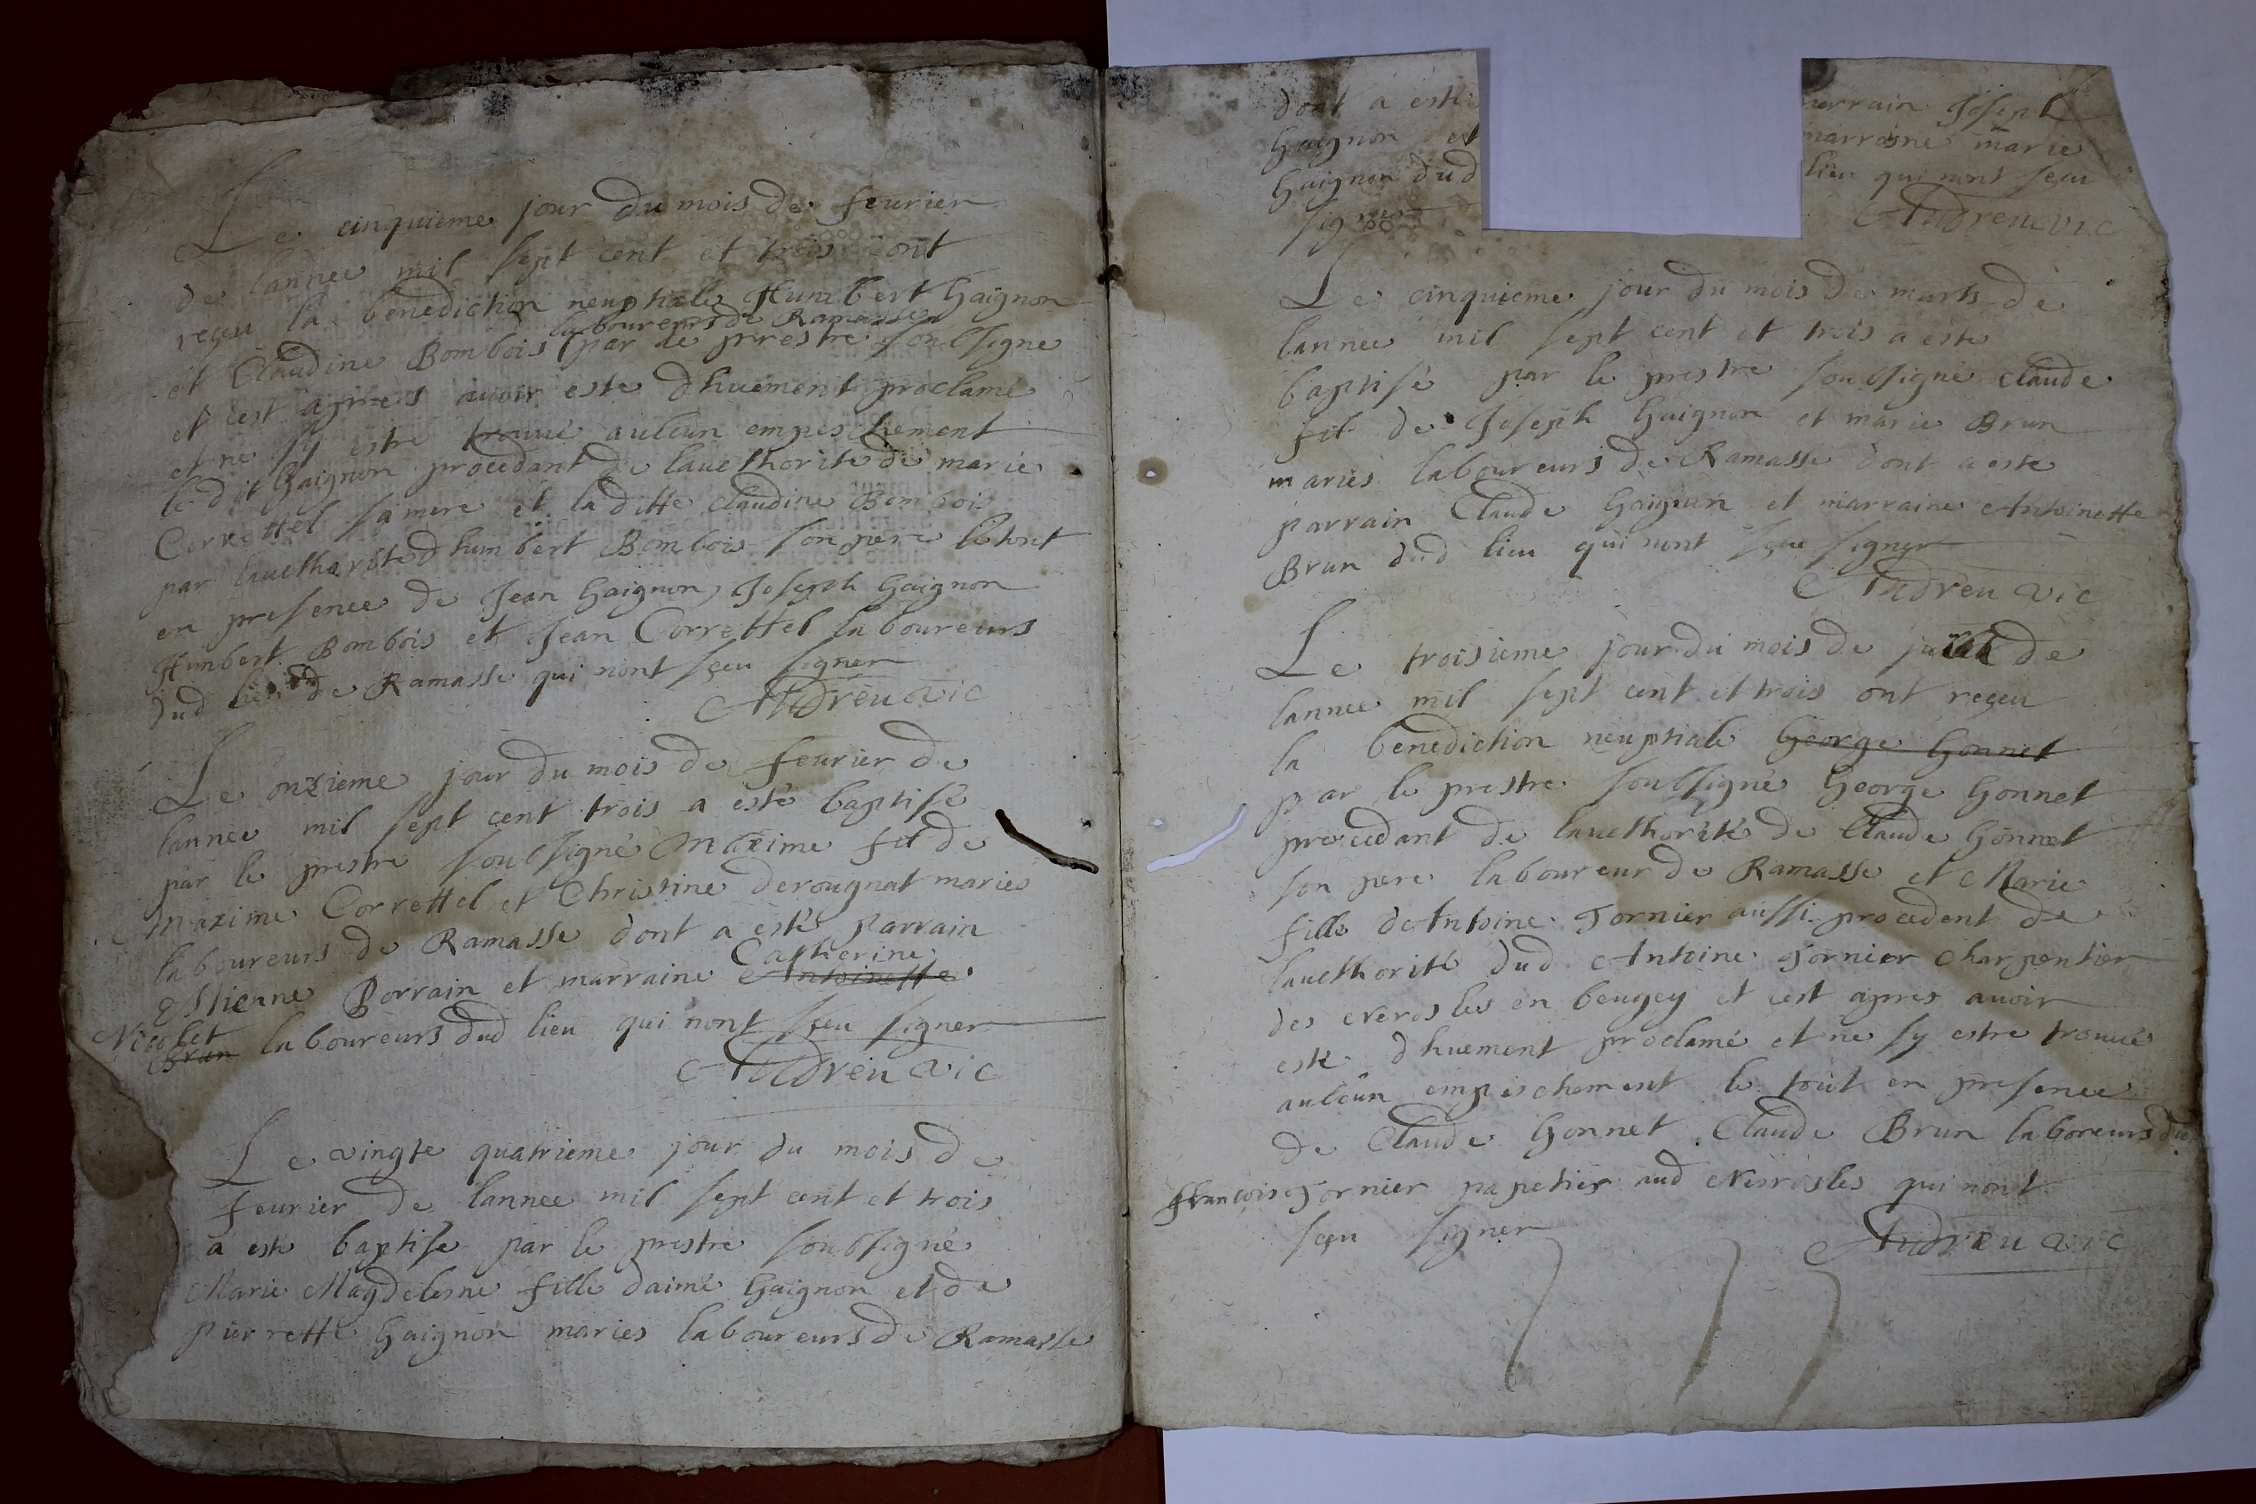 Le cinquieme jour du mois de feurier
de lannee mil sept cent et trois ont
reçeu la benediction neuptiale Humbert Gaignon
laboureurs de Ramasse
et Claudine Bombois par le prestre soubsigne
et cest apres auoir este dhuement proclame
et ne sy estre trouue aulcun empeschement
ledit Gaignon procedant de lauethorite de marie
Correttel sa mere et la ditte Claudine Bombois
par lauethorite dhumbert Bombois son pere le tout
en presence de Jean Gaignon, Joseph Gaignon
Humbert Bombois et Jean Correttel laboureurs
dud lieu de Ramasse qui nont sçeu signer
Andreu vic
Le onzieme jour du mois de feurier de
lannee mil sept cent trois a esté baptisé
par le prestre soubsigné Maxime fil de
maxime Correttel et Christine derougnat maries
laboureurs de Ramasse dont a esté parrain
Catherine
Estienne Borrain et marraine Antoinette
Nicolet
Brun laboureurs dud lieu qui nont sçeu signer
Andreu vic
Le vingte quatrieme jour du mois de
feurier de lannee mil sept cent et trois
a este baptise par le prestre soubsigné
Marie Magdelesne fille daimé Gaignon et de
pierrette Gaignon maries laboureurs de Ramasse
dont a este parrain Joseph
Gaignon et marraine marie
Gaignon dud lieu qui nont sçeu
signer Andreu vic
Le cinquieme jour du mois de mars de
lannee mil sept cent et trois a este
baptisé par le prestre soubsigné claude
fil de Joseph Gaignon et marie Brun
mariés laboureurs de Ramasse dont a este
parrain Claude Gaignon et marraine Antoinette
Brun dud lieu qui nont sçeu signer
Andreu vic
Le troisieme jour du mois de de
lannee mil sept cent et trois ont reçeu
la benediction neuptiale George Gonnet
par le prestre soubsigné George Gonnet
procedant de lauethorité de Claude Gonnet
son pere laboureur de Ramasse et Marie
fille de Antoine Tornier aussi procedent de
lauethorité dud Antoine Tornier charpentier
des en beugey et cest apres auoir
este dhuement proclamé et ne sy estre trouué
aulcun empeschement le tout en presence
de Claude Gonnet Claude Brun laboreurs du
françois Tornier papetier aud qui nont
sçeu signer Andreu vic